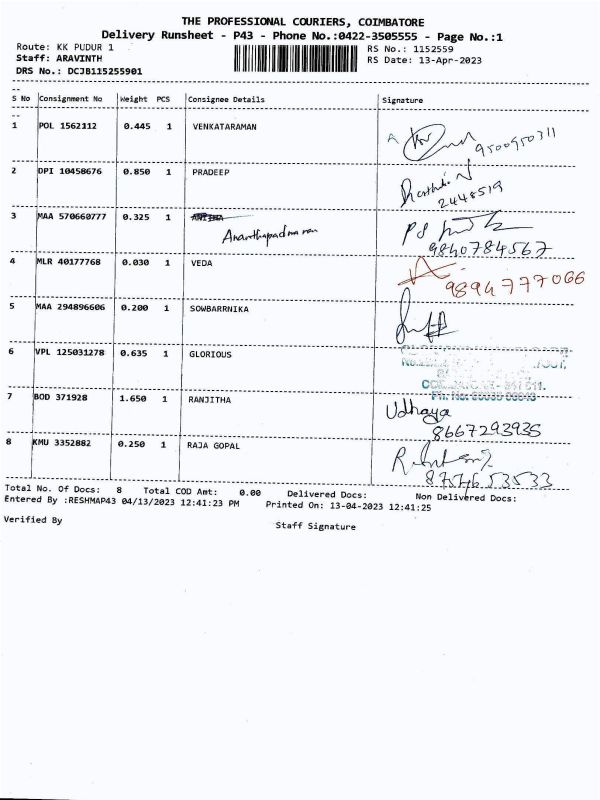 THE PROFESSIONAL COURIERS, COIMBATORE
Delivery Runsheet - P43 - Phone No.:0422-3505555 - Page No.:1
Route: KK PUDUR 1 RS No.: 1152559
Staff: ARAVINTH RS Date: 13-Apr-2023
DRS No.: DCJB115255901
S No Consignment No Weight PCS Consignee Details Signature
1 POL 1562112 0.445 1 VENKATARAMAN 9500950311
2 DPI 10458676 0.850 1 PRADEEP
2448519
3 MAA 570660777 0.325 1
Ananthapadmanan
9840784567
4 MLR 40177768 0.030 1 VEDA 9894777066
5 MAA 294896606 0.200 1 SOWBARRNIKA
6 VPL 125031278 0.635 1 GLORIOUS
7 BOD 371928 1.650 1 RANJITHA Udhaya
8667293935
8 KMU 3352882 0.250 1 RAJA GOPAL
Total No. Of Docs: 8 Total COD Amt: 0.00 Delivered Docs: Non Delivered Docs:
Entered By :RESHMAP43 04/13/2023 12:41:23 PM Printed On: 13-04-2023 12:41:25
Verified By Staff Signature